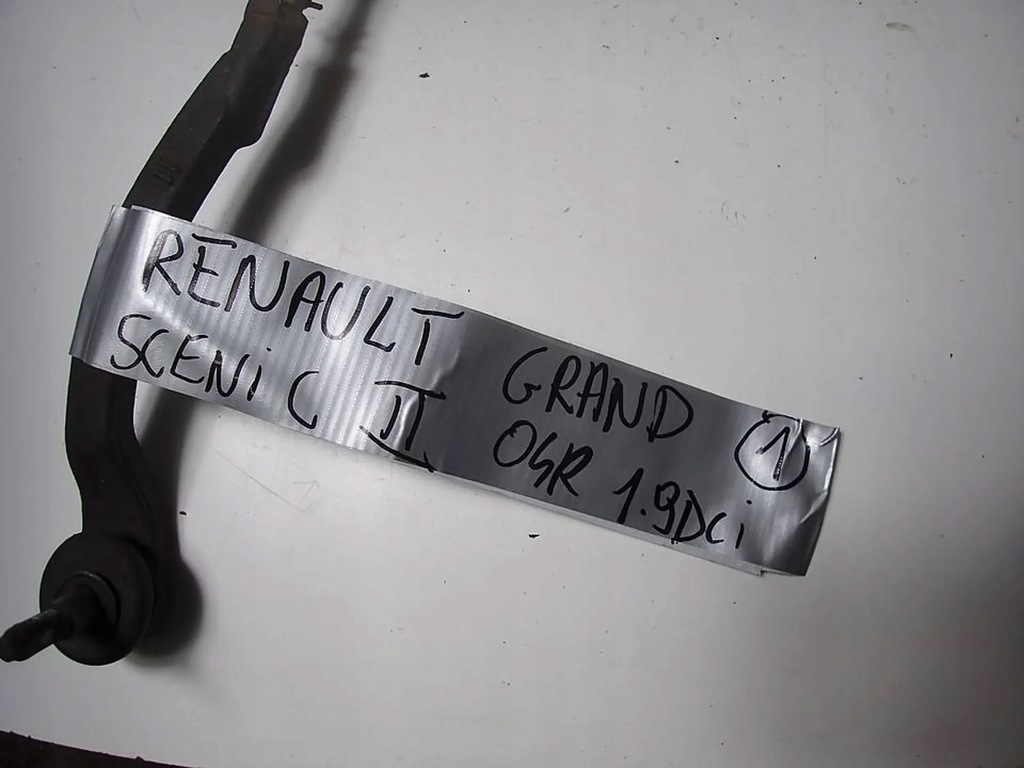 RENAULT GRAND
SCENiC II 04R 1.9DCi
1